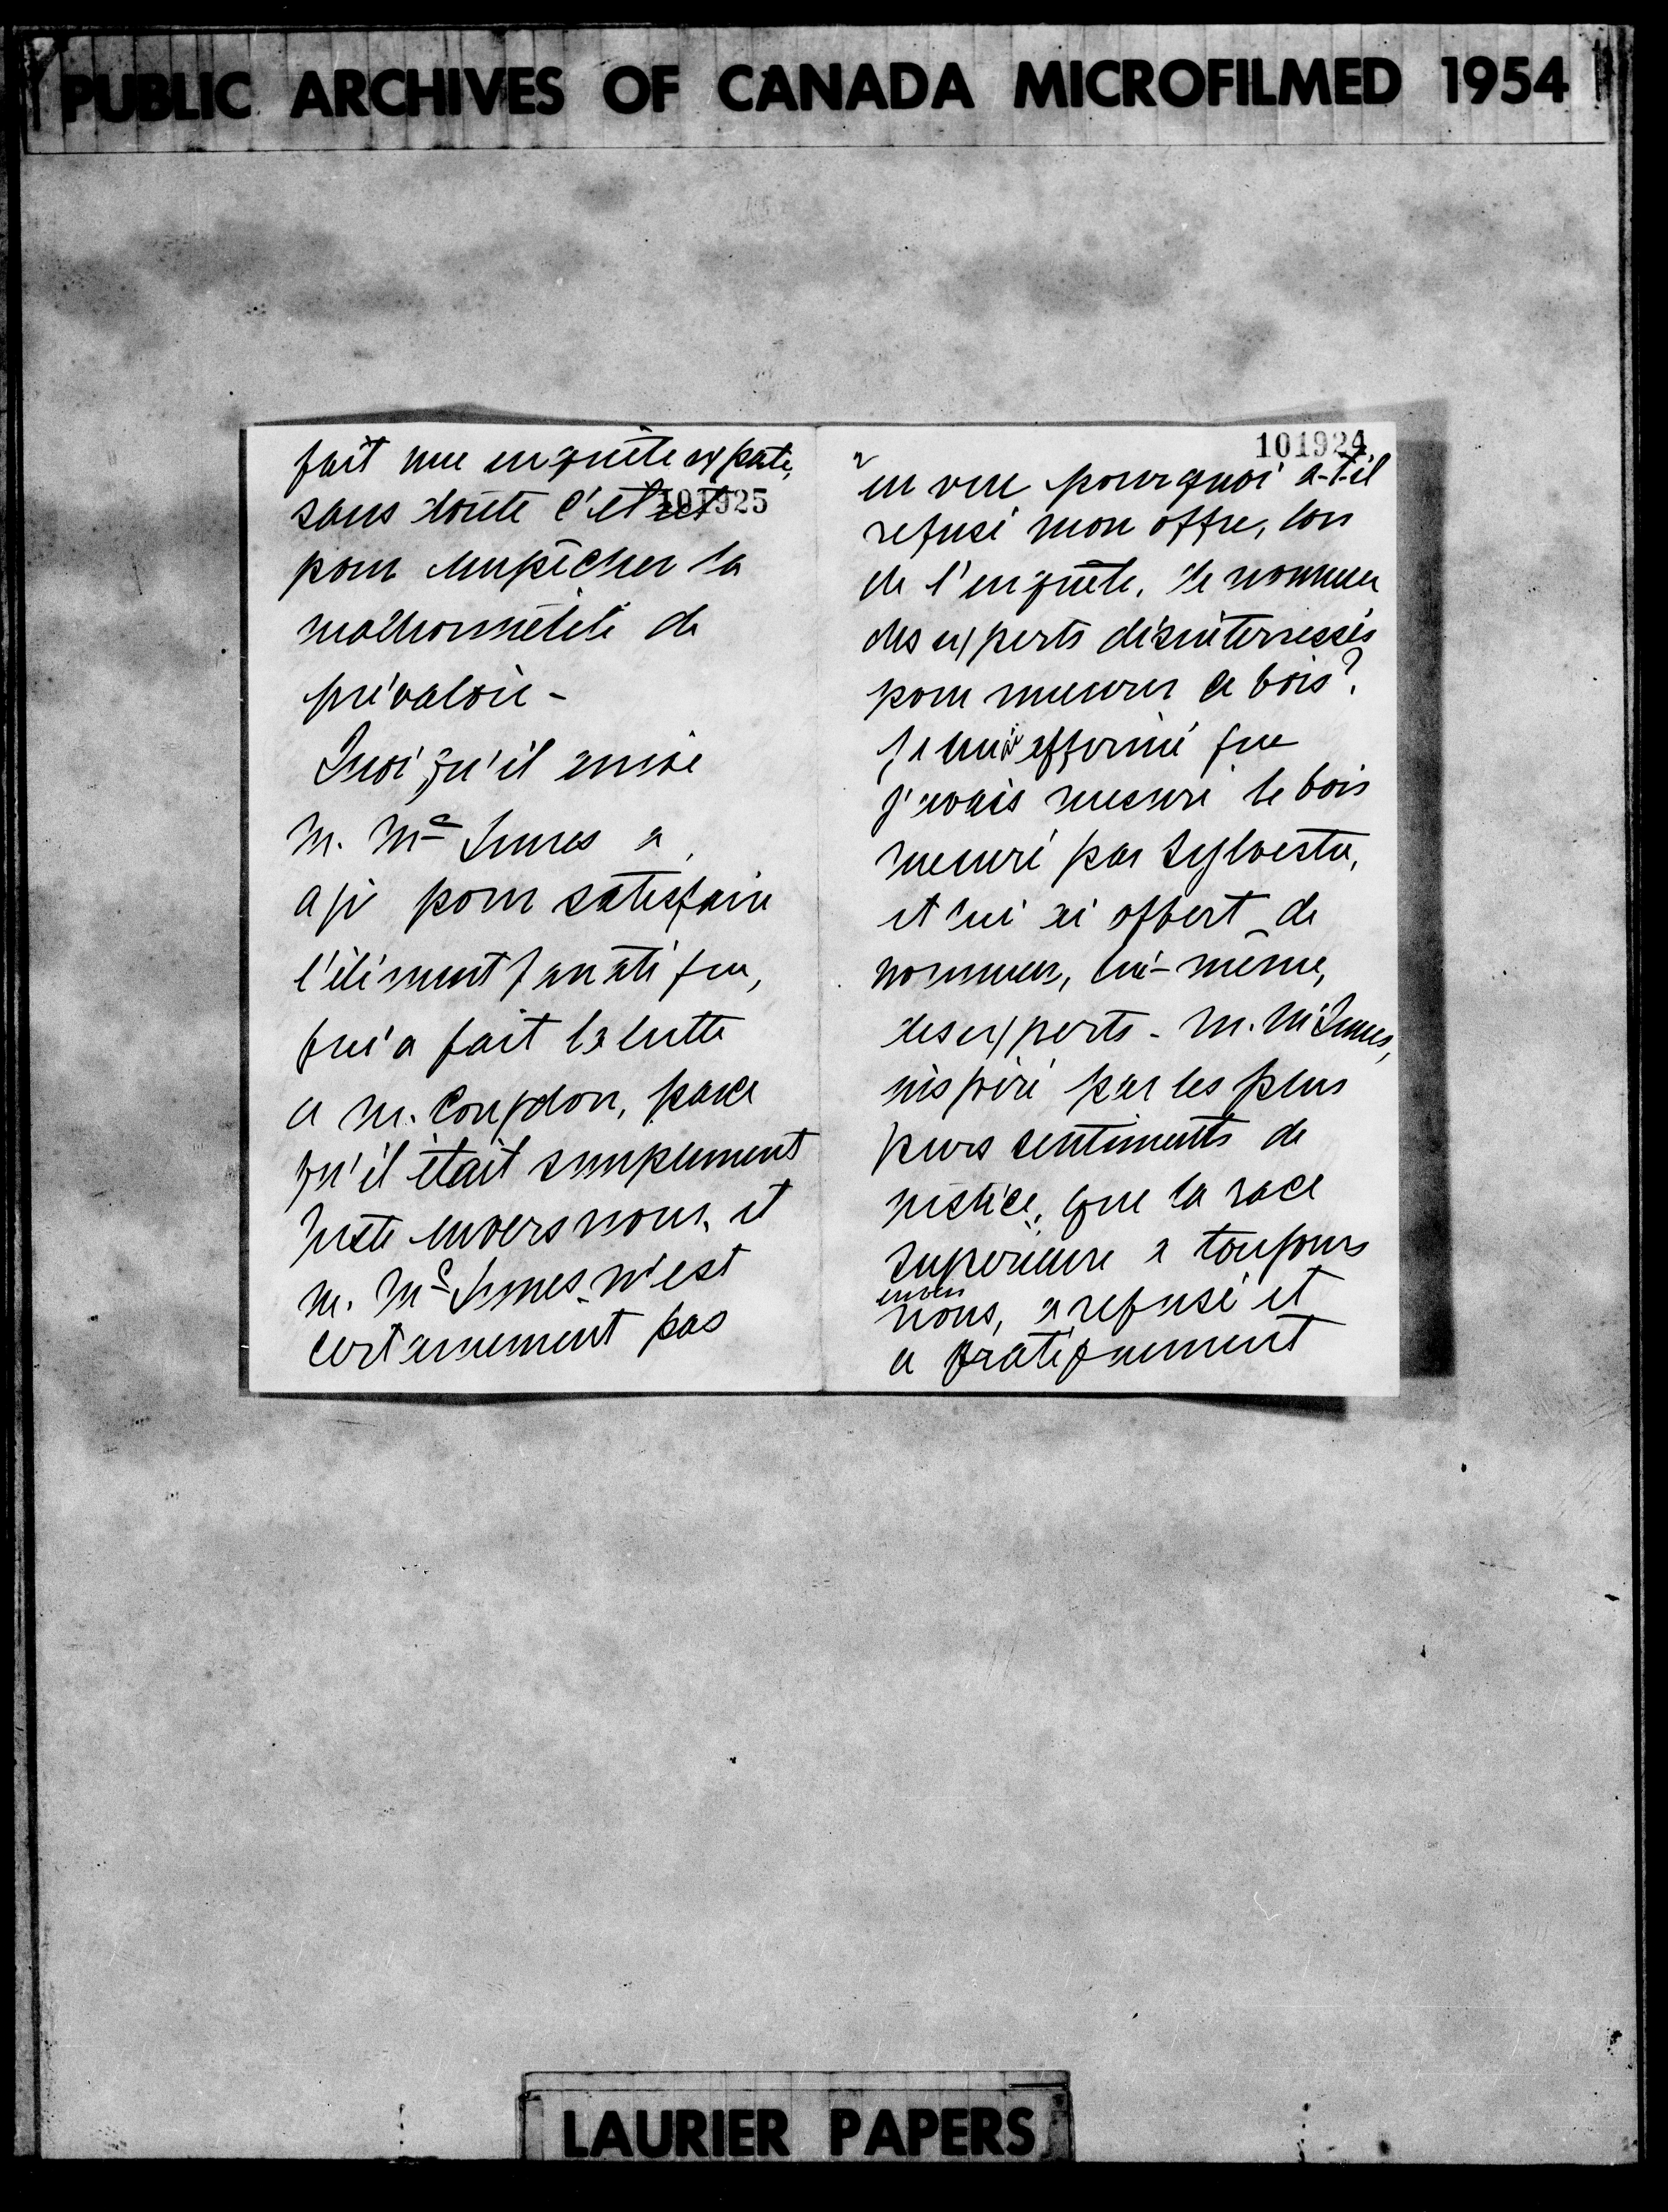 PUBLIC ARCHIVES OF CANADA MICROFILMED 1954
101924
2
en vue pourquoi a-t-il
refusé mon offre, lors
de l'enquête, de nommer
des experts désinterressés
pour mesurer ce bois?
Je lui ai affirmé que
j'avais mesuré le bois
mesuré par Sylvestre,
et lui ai offert de
nommer, lui-même,
des experts - M. McInnes,
inspiré par les plus
purs sentiments de
justice, que la race
supérieure a toujours
envers
nous, a refusé et
a pratiquement
101925
fait une enquête exparte,
sans doute c'était
pour empêcher la
malhonnêteté de
prévaloir -
Quoiqu'il arrive
M. Mc Innes a
agi pour satisfaire
l'élément fanatique,
qui a fait la lutte
a M. Congdon, parce
qu'il était simplement
juste envers nous, et
M. Mc Innes n'est
certainement pas
LAURIER PAPERS